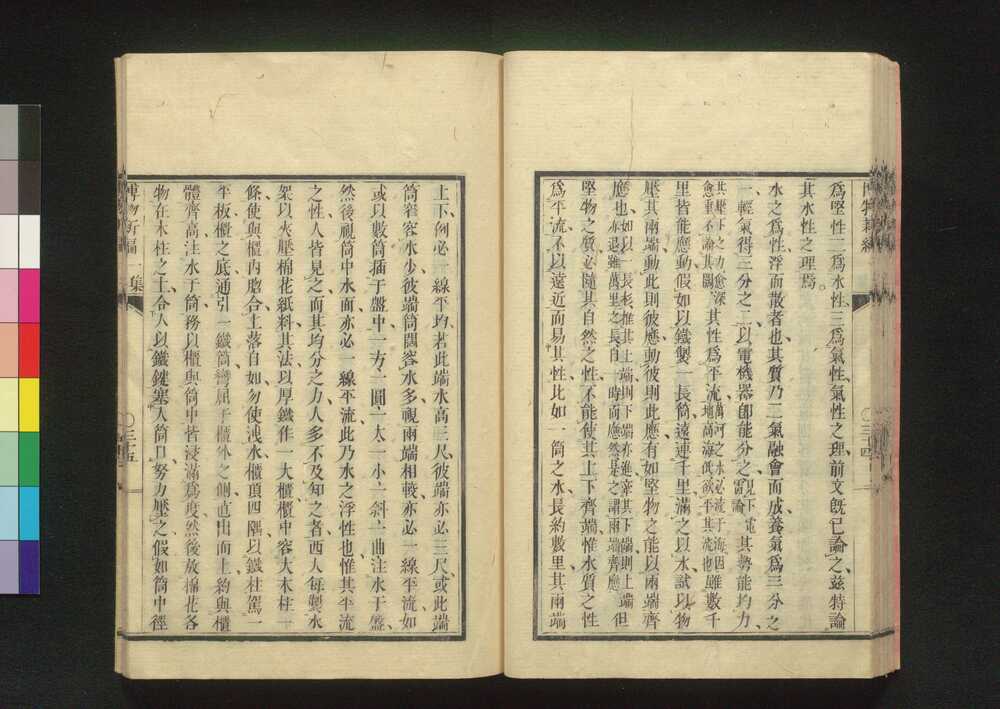 爲堅性二爲水性三爲氣性氣性之理前文旣已論之茲特論
其水性之理焉
水之爲性浮而散者也其質乃二氣融會而成養氣爲三分之
一輕氣得三分之二以電機器卽能分之見下電雷論其勢能均力
其壓下之力愈深愈重不論其闊其性爲平流萬河之水必流于海因地高海低欲平其流也雖數千
里皆能應動假如以鐵製一長筒遠連千里滿之以水試以物
壓其兩端動此則彼應動彼則此應有如堅物之能以兩端齊
應也如以一長杉推其上端則下端亦進牽其下端則上端亦退雖萬里之長自一時而應然是之謂兩端齊應但
堅物之質必隨其自然之性不能使其上下齊端惟水質之性
爲平流不以遠近而易其性比如一筒之水長約數里其兩端
博物新編
〇三十四
上下例必一線平均若此端水高三尺彼端亦必三尺或此端
筒窄容水少彼端筒闊容水多視兩端相較亦必一線平流如
或以數筒插于盤中一方一圓一大一小一斜一曲注水于盤
然後視筒中水面亦必一線平流此乃水之浮性也惟其平流
之性人皆見之而其均分之力人多不及知之者西人每製水
架以夾壓棉花紙料其法以厚鐵作一大櫃櫃中容大木柱一
條使與櫃內脗合上落自如勿使洩水櫃頂四隅以鐵柱駕一
平板櫃之底通引一鐵筒彎屈于櫃外之側直出而上約與櫃
體齊高注水于筒務以櫃與筒中皆浸滿爲度然後放棉花各
物在木柱之上合人以鐵鍵塞入筒口努力壓之假如筒中徑
博物新編 一集
〇三十五